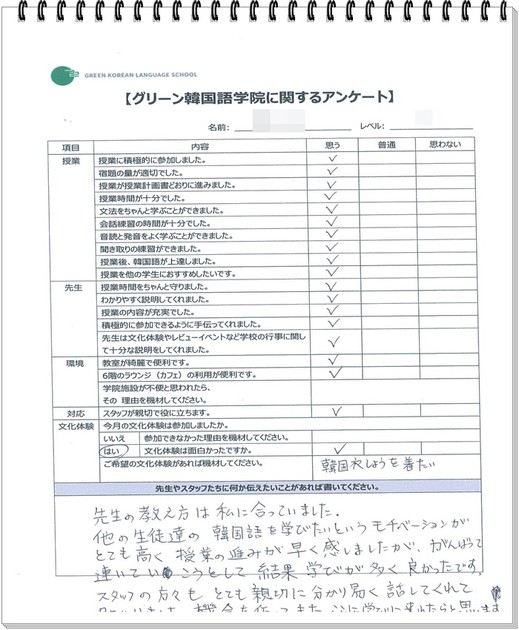 GREEN KOREAN LANGUAGE SCHOOL
【グリーン韓国語学院に関するアンケート】
名前: レベル:
項目 内容 思う 普通 思わない
授業 授業に積極的に参加しました。 ✓
宿題の量が適切でした。 ✓
授業が授業計画書どおりに進みました。 ✓
授業時間が十分でした。 ✓
文法をちゃんと学ぶことができました。 ✓
会話練習の時間が十分でした。 ✓
音読と発音をよく学ぶことができました。 ✓
聞き取りの練習ができました。 ✓
授業後、韓国語が上達しました。 ✓
授業を他の学生におすすめしたいです。 ✓
先生 授業時間をちゃんと守りました。 ✓
わかりやすく説明してくれました。 ✓
授業の内容が充実でした。 ✓
積極的に参加できるように手伝ってくれました。 ✓
先生は文化体験やレビューイベントなど学校の行事に関し
て十分な説明をしてくれました。 ✓
環境 教室が綺麗で便利です。 ✓
6階のラウンジ（カフェ）の利用が便利です。 ✓
学院施設が不便と思われたら、
その 理由を機材してください。
対応 スタッフが親切で役に立ちます。 ✓
文化体験 今月の文化体験は参加しましたか。
いいえ 参加できなかった理由を機材してください。
はい 文化体験は面白かったですか。 ✓
ご希望の文化体験があれば機材してください。 韓国衣しょうを着たい
先生やスタッフたちに何か伝えたいことがあれば書いてください。
先生の教え方は私に合っていました。
他の生徒達の 韓国語を学びたいというモチベーションが
とても高く 授業の進みが早く感しましたが、がんばって
連いていこうとして 結果 学びが多く良かったです。
スタッフの方々も とても親切に分かり易く話してくれて
機会を作って また ここに学びに来れたらと思います